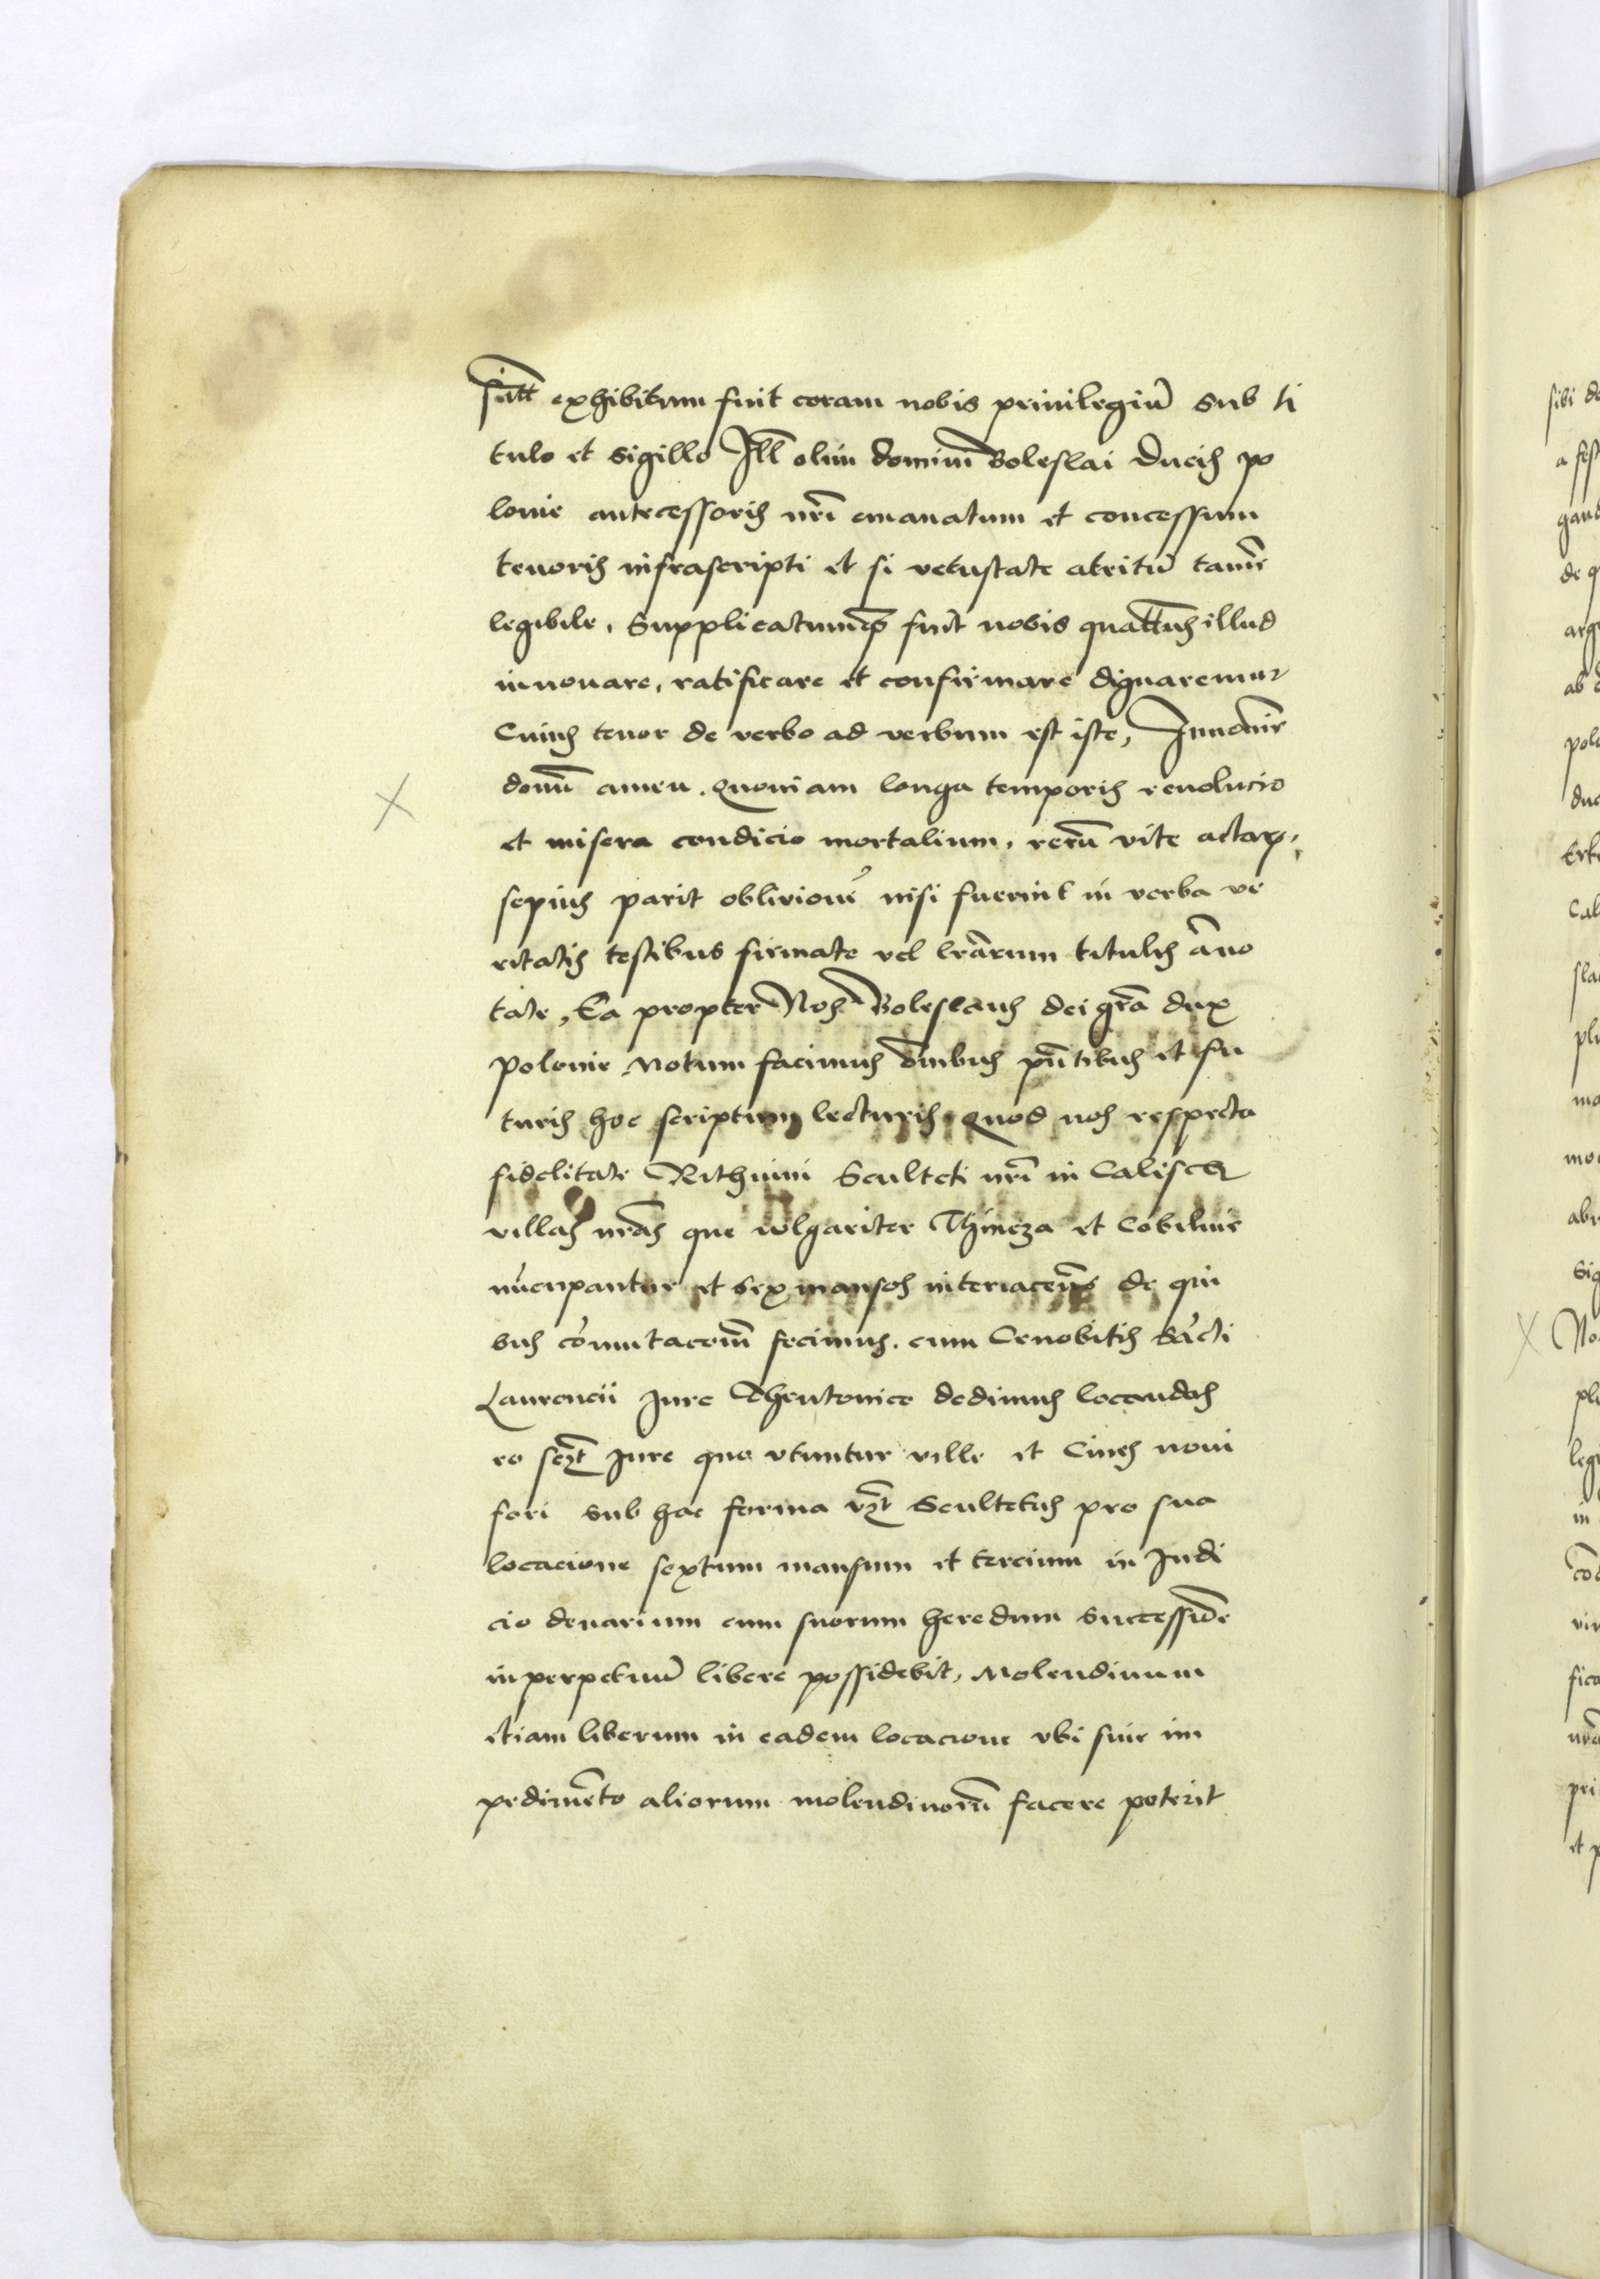 sunt exhibitum fuit coram nobis privilegiũ sub ti
tulo et sigillo Ill olim dominũ Boleslai Ducis po
lonie antecessoris nrĩ emanatum et concessum
tenoris infrascripti et si vetustate atritũ tamẽ
legibile. Supplicatumq fuit nobis illud
innouare, ratificare et confirmare dignaremur
Cuius tenor de verbo ad verbum est iste, Innomĩe
domĩ amen. Quoniam longa temporis reuolucio
et misera condicio mortalium, rerũ vite actaꝝ,
sepius parit obliuionẽ nisi fuerint in verba ve
ritatis testibus firmate vel lrãrum titulis ãno
tate, Ea propter Nos Boleslaus dei grã dux
Polonie Notum facimus õmbus pñtibus et fu
turis hoc scriptum lecturis Quod nos respecta
fidelitate Rithuini Sculteti nrĩ in Calisch
villas nrãs que wlgariter Thineza et Cobilnie
nũcupantur et sex mansos interiacẽtes de qui
bus cõmutacõem fecimus. cum Cenobitis Sãcti
Laurencii Jure Theutonico dedimus locandas
eo Jure quo vtuntur ville et Ciues noui
fori sub hac forma vꝫt Scultetus pro sua
locacione sextum mansum et tercium in Judi
cio denarium cum suorum heredum successiõe
in perpetuũ libere possidebit, Molendinum
etiam liberum in eadem locacione vbi sine im
pedimẽto aliorum molendinorũ facere poterit